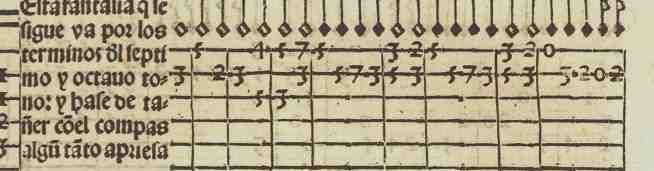 Esta fantasia q̃ se
sigue va por los
terminos ðl septi
mo y octauo to-
no: y hase de ta-
ñer cõel compas
algũ tãto apriesa
5 4 5 7 5 3 2 5 3 2 0
3 2 3 3 5 7 3 5 3 5 7 3 5 3 3 2 0 2
5 3